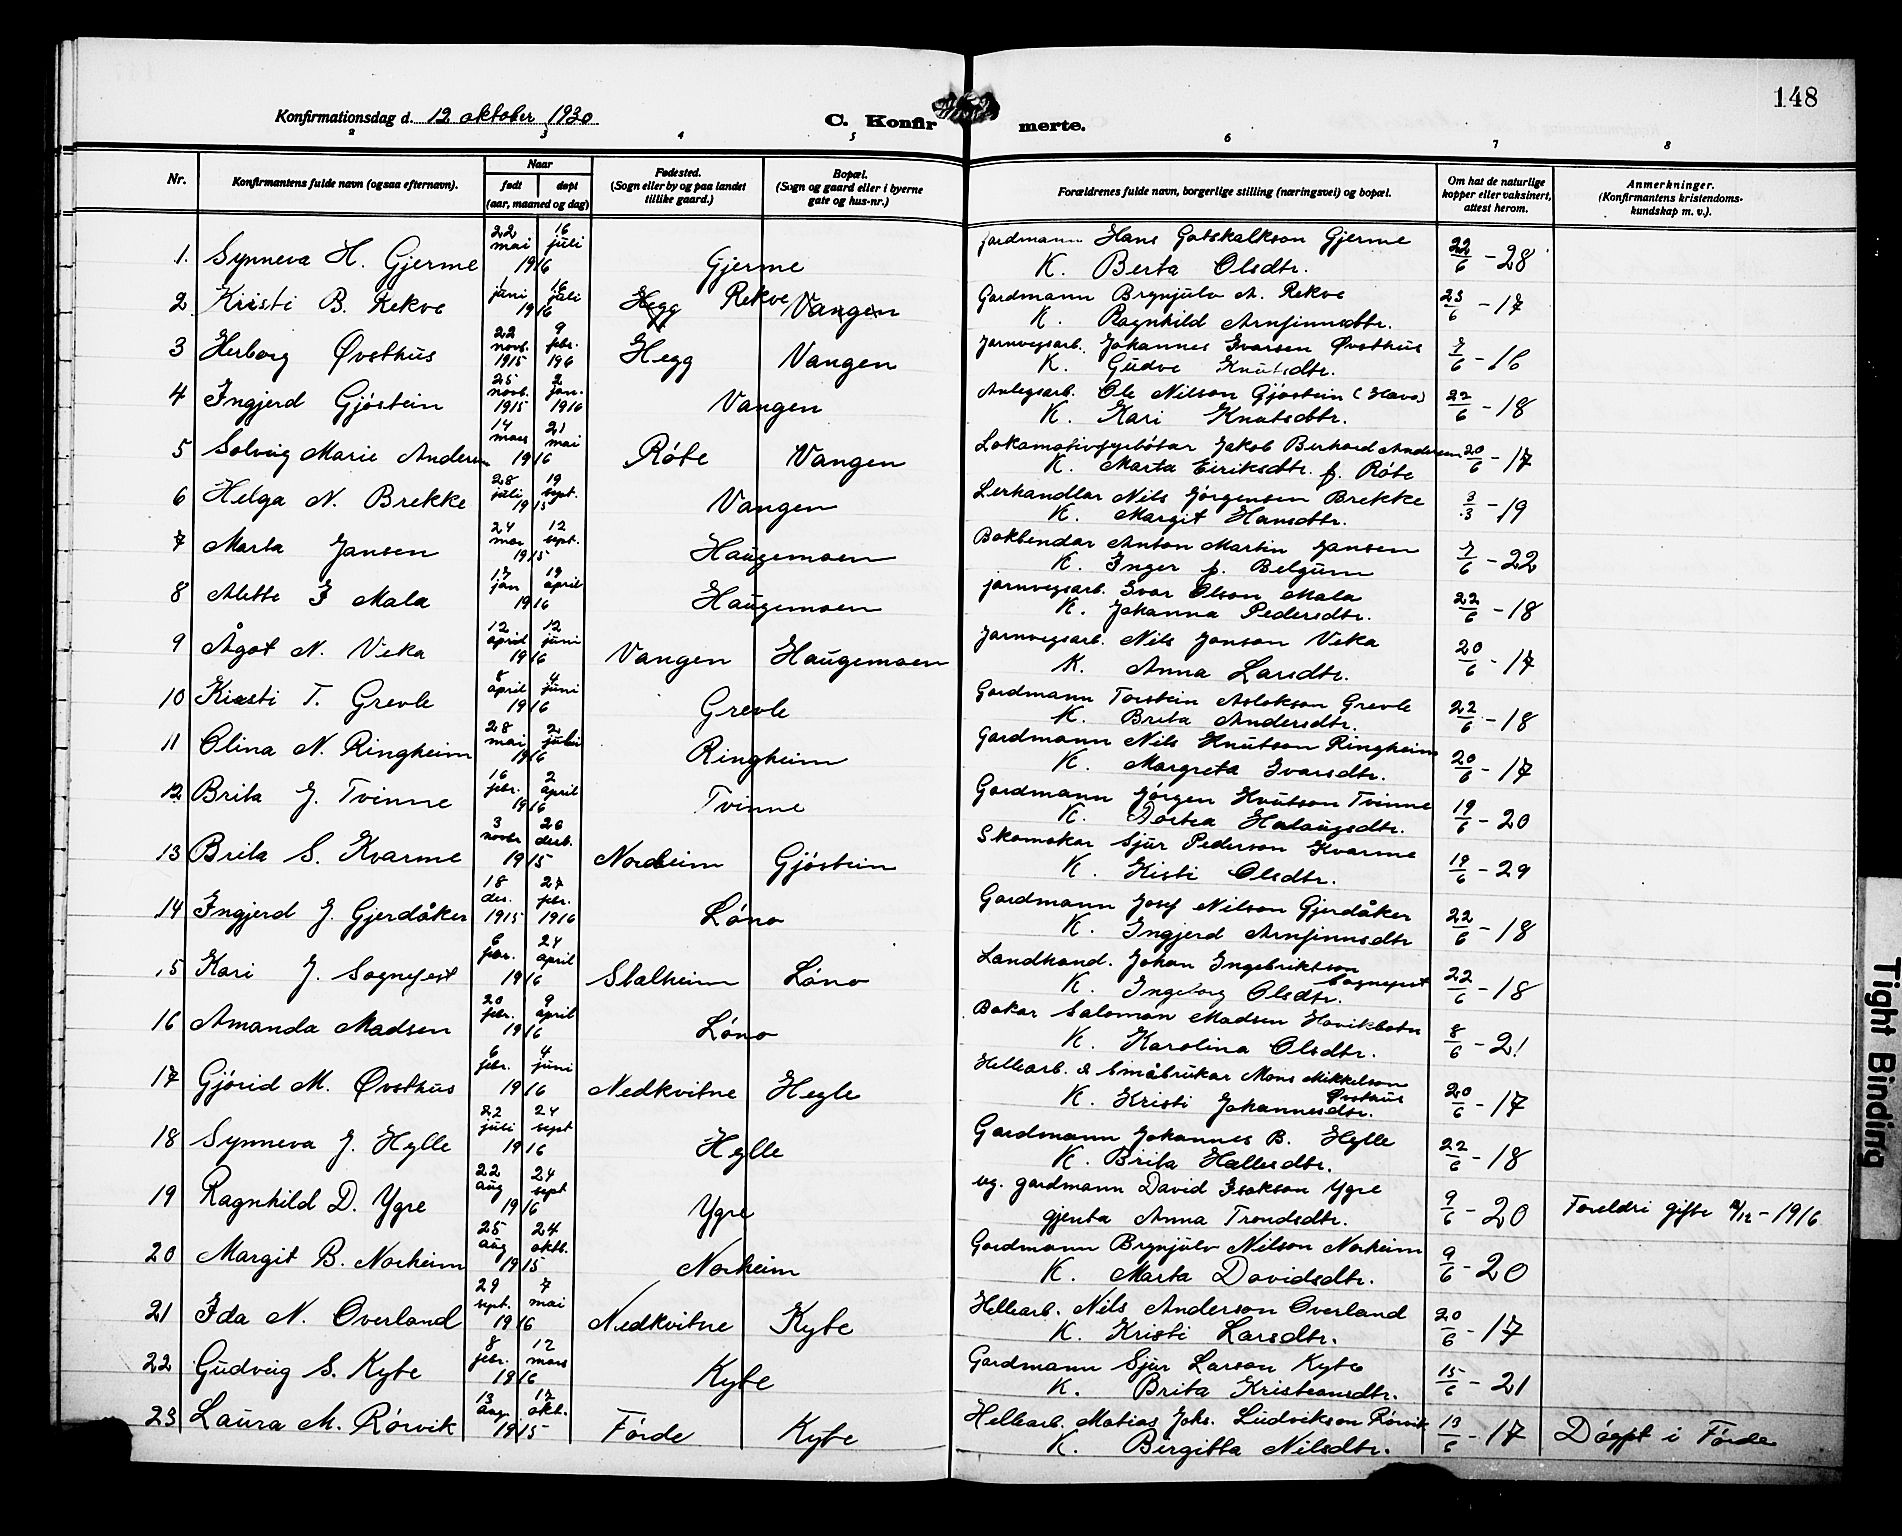 148
Konfirmationsdag d. 12 oktober 1930
C. Konfirmerte.
2 3 4 5 6 7 8
Nr. Konfirmantens fulde navn (ogsaa efternavn). Naar født døpt (aar, maaned og dag) Fødested. (Sogn eller by og paa landet tillike gaard.) Bopæl. (Sogn og gaard eller i byerne gate og hus-nr.) Forældrenes fulde navn, borgerlige stilling (næringsvei) og bopæl. Om hat de naturlige kopper eller vaksinert, attest herom. Anmerkninger. (Konfirmantens kristendoms-kundskap m. v.).
1. Synneva H. Gjerme 22 mai 16 juli 1916 Gjerme Gardmann Hans Gotskalkson Gjerme 22/6 - 28
K. Berta Olsdtr.
2 Kristi B. Rekve 1 juni 16 juli 1916 Hegg Rekve Vangen Gardmann Brynjulv A. Rekve 23/6 - 17
K. Ragnhild Arnfinnsdtr.
3 Herborg Øvsthus 22 novb. 1915 9 febr. 196 Hegg Vangen Jarnvegsarb. Johannes Ivarsen Øvsthus 7/6 - 16
K. Gudve Knutsdtr.
4 Ingjerd Gjøstein 25 novb. 1915 2 jan. 1916 Vangen Anlegsarb. Ole Nilson Gjøstein (Hævo) 22/6 - 18
K. Kari Knutsdtr.
5 Solveig Marie Andersen 14 mars 21 mai 1916 Røte Vangen Lokomotivfyrbøtar Jakob Berhard Andersen 20/6 - 17
K. Marta Eiriksdtr. f. Røte
6 Helga N. Brekke 28 juli 19 sept. 1915 Vangen Lerhandlar Nils Jørgensen Brekke 3/3 - 19
K. Margit Hansdtr.
7 Marta Jansen 24 mai 12 sept. 1915 Haugemoen Bokbendar Anton Martin Jansen 7/6 - 22
K. Inger f. Belgum
8 Alette I Mala 17 jan 19 april 1916 Haugemoen jarnvegsarb. Ivar Olson Mala 22/6 - 18
K. Johanna Pedersdtr.
9 Ågot N. Veka 12 april 12 juni 1916 Vangen Haugemoen Jarnvegsarb. Nils Jonson Veka 20/6 - 17
K. Anna Larsdtr.
10 Kirsti T. Grevle 8 april 4 juni 1916 Grevle Gardmann Torstein Aslakson Grevle 22/6 - 18
K. Brita Andersdtr.
11 Olina N. Ringheim 28 mai 2 juli 1916 Ringheim Gardmann Nils Knutson Ringheim 20/6 - 17
K. Margreta Ivarsdtr.
12 Brita J. Tvinne 16 febr. 2 april 1916 Tvinne Gardmann Jørgen Knutson Tvinne 19/6 - 20
K. Dortea Halaugsdtr.
13 Brita S. Kvarme 3 novbr 26 desb. 1915 Nordheim Gjøstein Skomakar Sjur Pederson Kvarme 19/6 - 29
K. Kisti Olsdtr.
14 Ingjerd J. Gjerdåker 18 des. 1915 27 febr. 1916 Løno Gardmann Josef Nilson Gjerdåker 22/6 - 18
K. Ingjerd Arnfinnsdtr
15 Kari J. Sognefest 6 febr. 24 april 1916 Stalheim Løno Landhand. Johan Ingebriktson Sognefest 22/6 - 18
K. Ingeborg Olsdtr.
16 Amanda Madsen 20 febr. 9 april 1916 Løno Bakar Salomon Madsen Havikbotn 8/6 - 21
K. Karolina Olsdtr.
17 Gjørid M. Øvsthus 6 febr. 4 juni 1916 Nedkvitne Hegle Hellearb. & Småbrukar Mons Mikkelson Øvsthus 20/6 - 17
K. Kristi Johannesdtr.
18 Synneva J. Hylle 22 juli 24 sept 1916 Hylle Gardmann Johannes B. Hylle 22/6 - 18
K. Brita Hallesdtr.
19 Ragnhild D. Ygre 22 aug 24 sept 1916 Ygre ug. gardmann David Isakson Ygre 9/6 - 20 Foreldri gifte /12 - 1916
gjenta Anna Trondsdtr.
20 Margit B. Norheim 25 aug 24 oktb. 1915 Norheim Gardmann Brynjulv Nilson Norheim 9/6 - 20
K. Marta Davidsdtr.
21 Ida N. Overland 29 sept. 7 mai 1916 Nedkvitne Kyte Hellearb. Nils Anderson Overland 20/6 - 17
K. Kristi Larsdtr.
22 Gudveig S. Kyte 8 febr. 12 mars 1916 Kyte Gardmann Sjur Larson Kyte 15/6 - 21
K. Brita Kristeansdtr.
23 Laura M. Rørvik 13 aug 17 okt. 1915 Førde Kyte Hellearb. Matias Johs. Ludvikson Rørvik 13/6 - 17 Døypt i Førde
K. Birgitta Nilsdtr.
Tight Binding